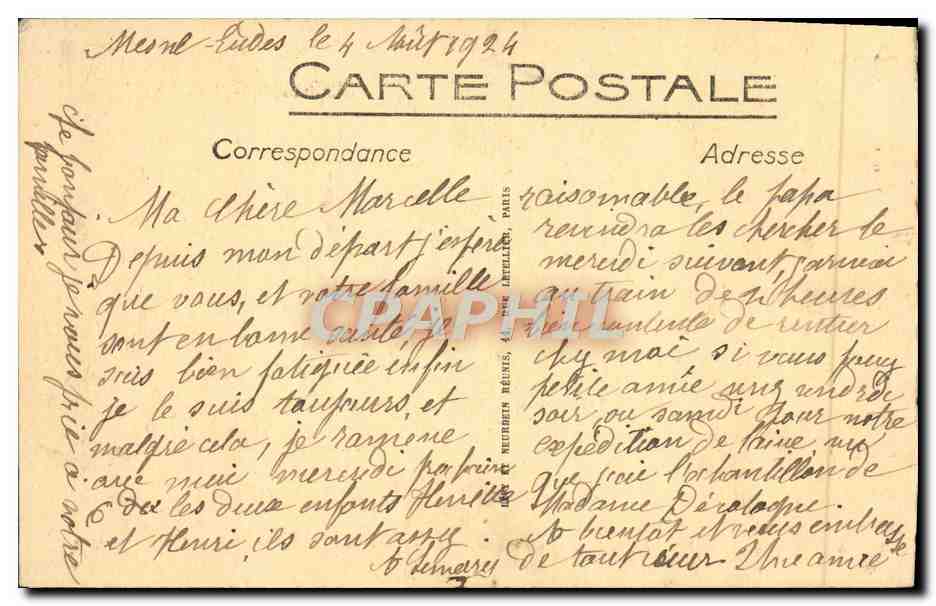 Mesnil-Eudes le 4 Août 1924
CARTE POSTALE
Correspondance
Adresse
Ma Chère Marcelle
Depuis mon départ j'espère
que vous, et votre famille
sont en bonne santé, je
suis bien fatiguée enfin
je le suis toujours, et
malgré cela, je ramène
avec moi mercredi
les deux enfants
et Henri, ils sont assez
raisonnable, le papa
reviendra les chercher le
mercredi suivant, j'arrive
au train de heures
bien contente de rentrer
chez moi si vous pouvez
petite amie un vendredi
soir ou samedi pour notre
expédition de laine
que j'aie l'échantillon de
Madame
A bientôt et vous embrasse
de tout cœur Une amie
Le bonjour je vous prie à votre
familles
LEVY ET NEURDEIN RÉUNIS, 44, RUE LETELLIER, PARIS
CPAPHIL